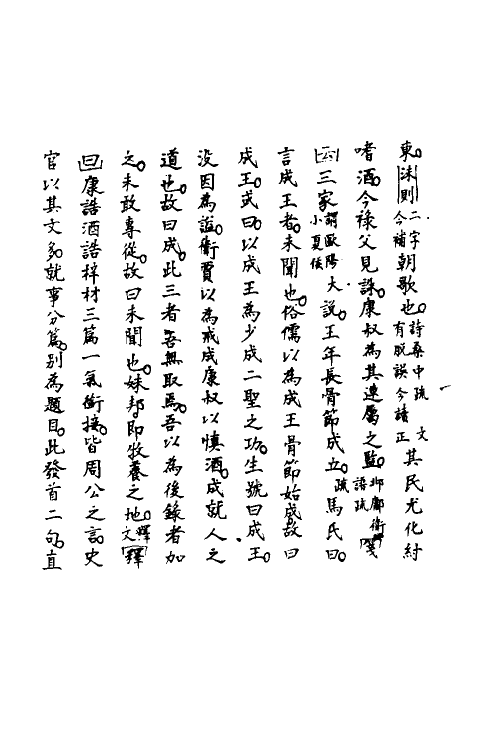 東沬則二字今補朝歌也詩桑中疏文有脫誤今諸正其民尤化紂
嗜酒今祿父見誅康叔為其連屬之監邶鄘衛譜疏箋
云三家謂歐陽大小夏侯說王年長骨節成立疏馬氏曰
言成王者未聞也俗儒以為成王骨節始成故曰
成王或曰以成王為少成二聖之功生號曰成王
沒因為諡衛賈以為戒成康叔以慎酒成就人之
道也故曰成此三者吾無取焉吾以為後錄者加
之未敢專從故曰未聞也妹邦即牧養之地釋文釋
曰康誥酒誥梓材三篇一氣銜接皆周公之言史
官以其文多就事分篇別為題目此發首二句直